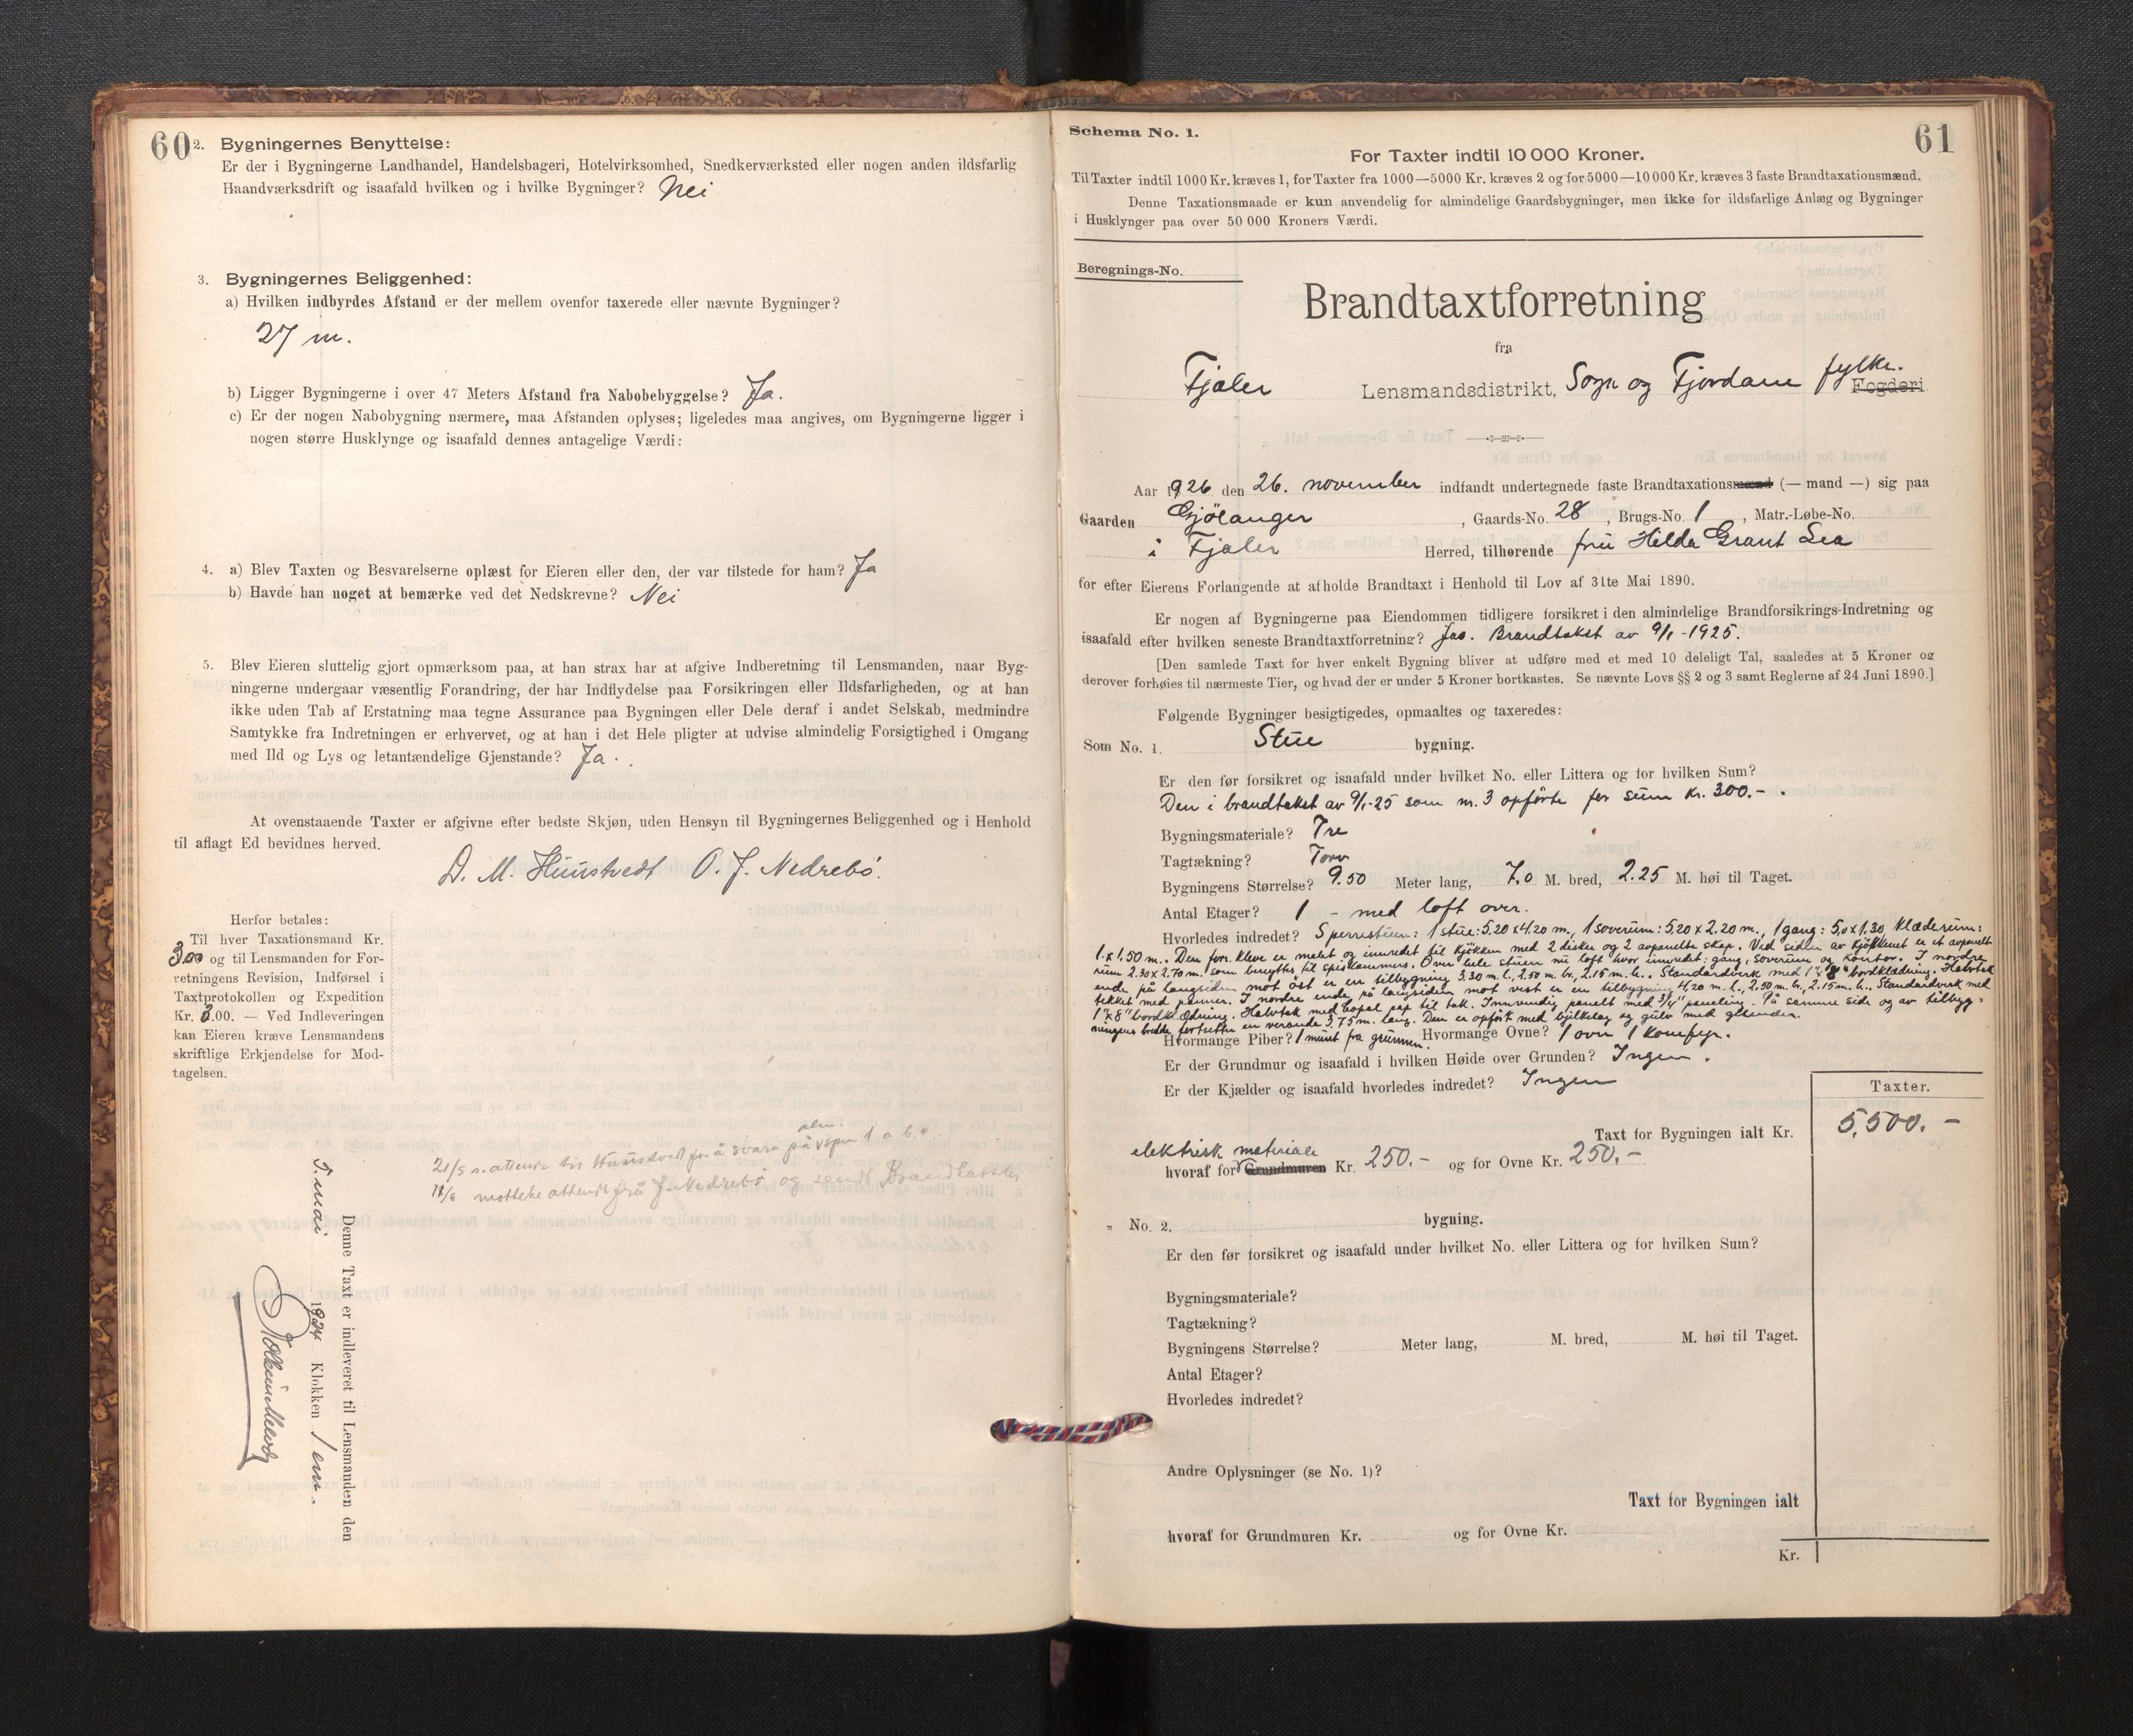 60
2. Bygningernes Benyttelse:
Er der i Bygningerne Landhandel, Handelsbageri, Hotelvirksomhed, Snedkerværksted eller nogen anden ildsfarlig
Haandværksdrift og isaafald hvilken og i hvilke Bygninger? Nei
3. Bygningernes Beliggenhed:
a) Hvilken indbyrdes Afstand er der mellem ovenfor taxerede eller nævnte Bygninger?
27 m.
b) Ligger Bygningerne i over 47 Meters Afstand fra Nabobebyggelse? Ja.
c) Er der nogen Nabobygning nærmere, maa Afstanden oplyses; ligeledes maa angives, om Bygningerne ligger i
nogen større Husklynge og isaafald dennes antagelige Værdi:
4. a) Blev Taxten og Besvarelserne oplæst for Eieren eller den, der var tilstede for ham? Ja
b) Havde han noget at bemærke ved det Nedskrevne? Nei
5. Blev Eieren sluttelig gjort opmærksom paa, at han strax har at afgive Indberetning til Lensmanden, naar Byg-
ningerne undergaar væsentlig Forandring, der har Indflydelse paa Forsikringen eller Ildsfarligheden, og at han
ikke uden Tab af Erstatning maa tegne Assurance paa Bygningen eller Dele deraf i andet Selskab, medmindre
Samtykke fra Indretningen er erhvervet, og at han i det Hele pligter at udvise almindelig Forsigtighed i Omgang
med Ild og Lys og letantændelige Gjenstande? Ja.
At ovenstaaende Taxter er afgivne efter bedste Skjøn, uden Hensyn til Bygningernes Beliggenhed og i Henhold
til aflagt Ed bevidnes herved.
D. M. Hunstvedt O. J. Nedrebö.
Herfor betales:
Til hver Taxationsmand Kr.
3.00 og til Lensmanden for For-
retningens Revision, Indførsel i
Taxtprotokollen og Expedition
Kr. 3.00. — Ved Indleveringen
kan Eieren kræve Lensmandens
skriftlige Erkjendelse for Mod-
tagelsen.
på spm 1 a b.
fra J. Nedrebö og sendt Brandtaksten
Denne Taxt er indleveret til Lensmanden den
7. mai 1924 Klokken 1 em.
Schema No. 1.
61
For Taxter indtil 10 000 Kroner.
Til Taxter indtil 1000 Kr. kræves 1, for Taxter fra 1000—5000 Kr. kræves 2 og for 5000—10 000 Kr. kræves 3 faste Brandtaxationsmænd.
Denne Taxationsmaade er kun anvendelig for almindelige Gaardsbygninger, men ikke for ildsfarlige Anlæg og Bygninger
i Husklynger paa over 50 000 Kroners Værdi.
Beregnings-No.
Brandtaxtforretning
fra
Fjaler Lensmandsdistrikt, Sogn og Fjordane fylke. Fogderi
Aar 1926 den 26. november indfandt undertegnede faste Brandtaxationsmænd (— mand —) sig paa
Gaarden Gjölanger, Gaards-No. 28, Brugs-No. 1, Matr.-Løbe-No.
i Fjaler Herred, tilhørende frü Hilda Grant Lea
for efter Eierens Forlangende at afholde Brandtaxt i Henhold til Lov af 31te Mai 1890.
Er nogen af Bygningerne paa Eiendommen tidligere forsikret i den almindelige Brandforsikrings-Indretning og
isaafald efter hvilken seneste Brandtaxtforretning? Jaa. Brandtakst av 9/1-1925.
[Den samlede Taxt for hver enkelt Bygning bliver at udføre med et med 10 deleligt Tal, saaledes at 5 Kroner og
derover forhøies til nærmeste Tier, og hvad der er under 5 Kroner bortkastes. Se nævnte Lovs §§ 2 og 3 samt Reglerne af 24 Juni 1890.]
Følgende Bygninger besigtigedes, opmaaltes og taxeredes:
Som No. 1. Stüe bygning.
Er den før forsikret og isaafald under hvilket No. eller Littera og for hvilken Sum?
Den i brandtakst av 9/1-25 som nr. 3 opförte for süm kr. 300.-.
Bygningsmateriale? Tre
Tagtækning? Torv
Bygningens Størrelse? 9.50 Meter lang, 7.0 M. bred, 2.25 M. høi til Taget.
Antal Etager? 1 - med loft over.
Hvorledes indredet? Sperrestüen: 1 stüe: 5.20 x 4.20 m., 1 soverüm: 5.20 x 2.20 m., 1 gang: 5.0 x 1.30, Klæderüm:
1. x 1.50 m.. Den forr. kleve er malet og innredet til kjökken med 2 disker og 2 avpanelte skap. Ved siden av kjökkenet er et avpanelt
rüm 2.30 x 2.70 m. som benyttes til spiskammers. Over hele stüen nü loft hvor innredet: gang, soverüm og kontor. I nordre
ende på langsiden mot öst er en tilbygning 3.30 m. l., 2.50 m. br., 2.15 m. h.. Standardverk med 1" x 8" bordklædning. Halvtak
tekket med panner. I nordre ende på langsiden mot vest er en tilbygning 4.20 m. l., 2.50 m. br., 2.15 m. h.. Standardverk med
1" x 8" bordklædning. Halvtak med kopal pap til tak. Innvendig panelt med 3/4" paneling. På samme side og av tilbygg-
ningens bredde fortsetter en veranda 3.75 m. lang. Den er opfört med bjelkelag og gülv med gelender.
Hvormange Piber? 1 müret fra grünnen. Hvormange Ovne? 1 ovn 1 komfyr.
Er der Grundmur og isaafald i hvilken Høide over Grunden? Ingen.
Er der Kjælder og isaafald hvorledes indredet? Ingen
Taxter.
Taxt for Bygningen ialt Kr. 5.500.-
elektrisk materiale
hvoraf for Grundmuren Kr. 250.- og for Ovne Kr. 250.-
„ No. 2. bygning.
Er den før forsikret og isaafald under hvilket No. eller Littera og for hvilken Sum?
Bygningsmateriale?
Tagtækning?
Bygningens Størrelse? Meter lang, M. bred, M. høi til Taget.
Antal Etager?
Hvorledes indredet?
Andre Oplysninger (se No. 1)?
Taxt for Bygningen ialt
hvoraf for Grundmuren Kr. og for Ovne Kr.
Kr.